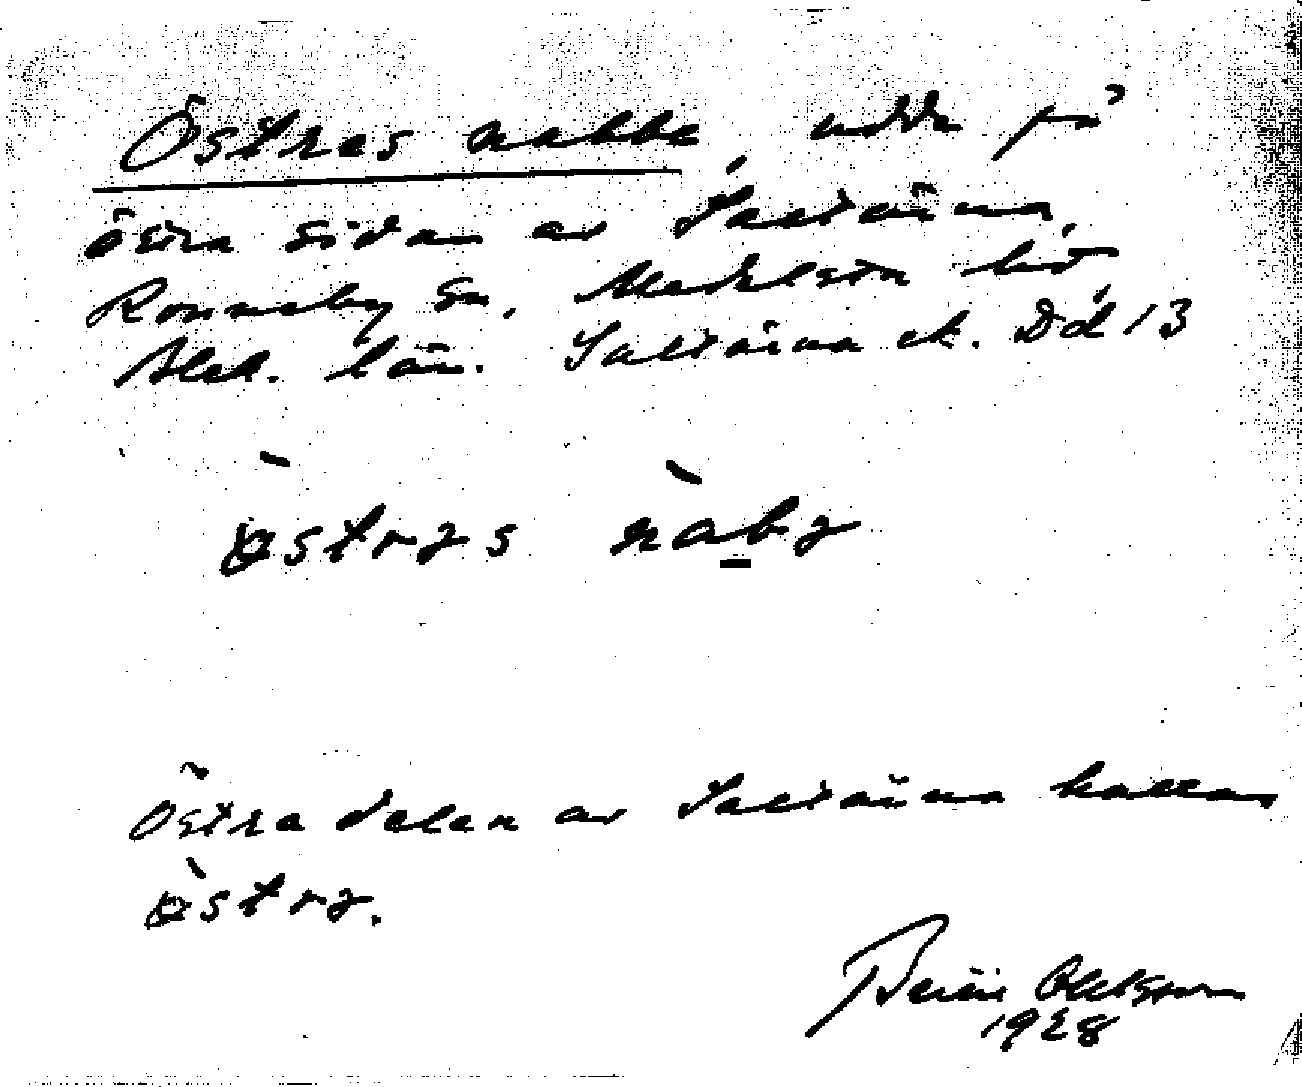 Östres nabbe, udde på
östra sidan av Saltärna,
Ronneby sn, Medelsta hd,
Blek. län. Saltärna ek. Dd 13
östrəs nabə
Östra delen av Saltärna kallas
östrə.
Olofsson
1928